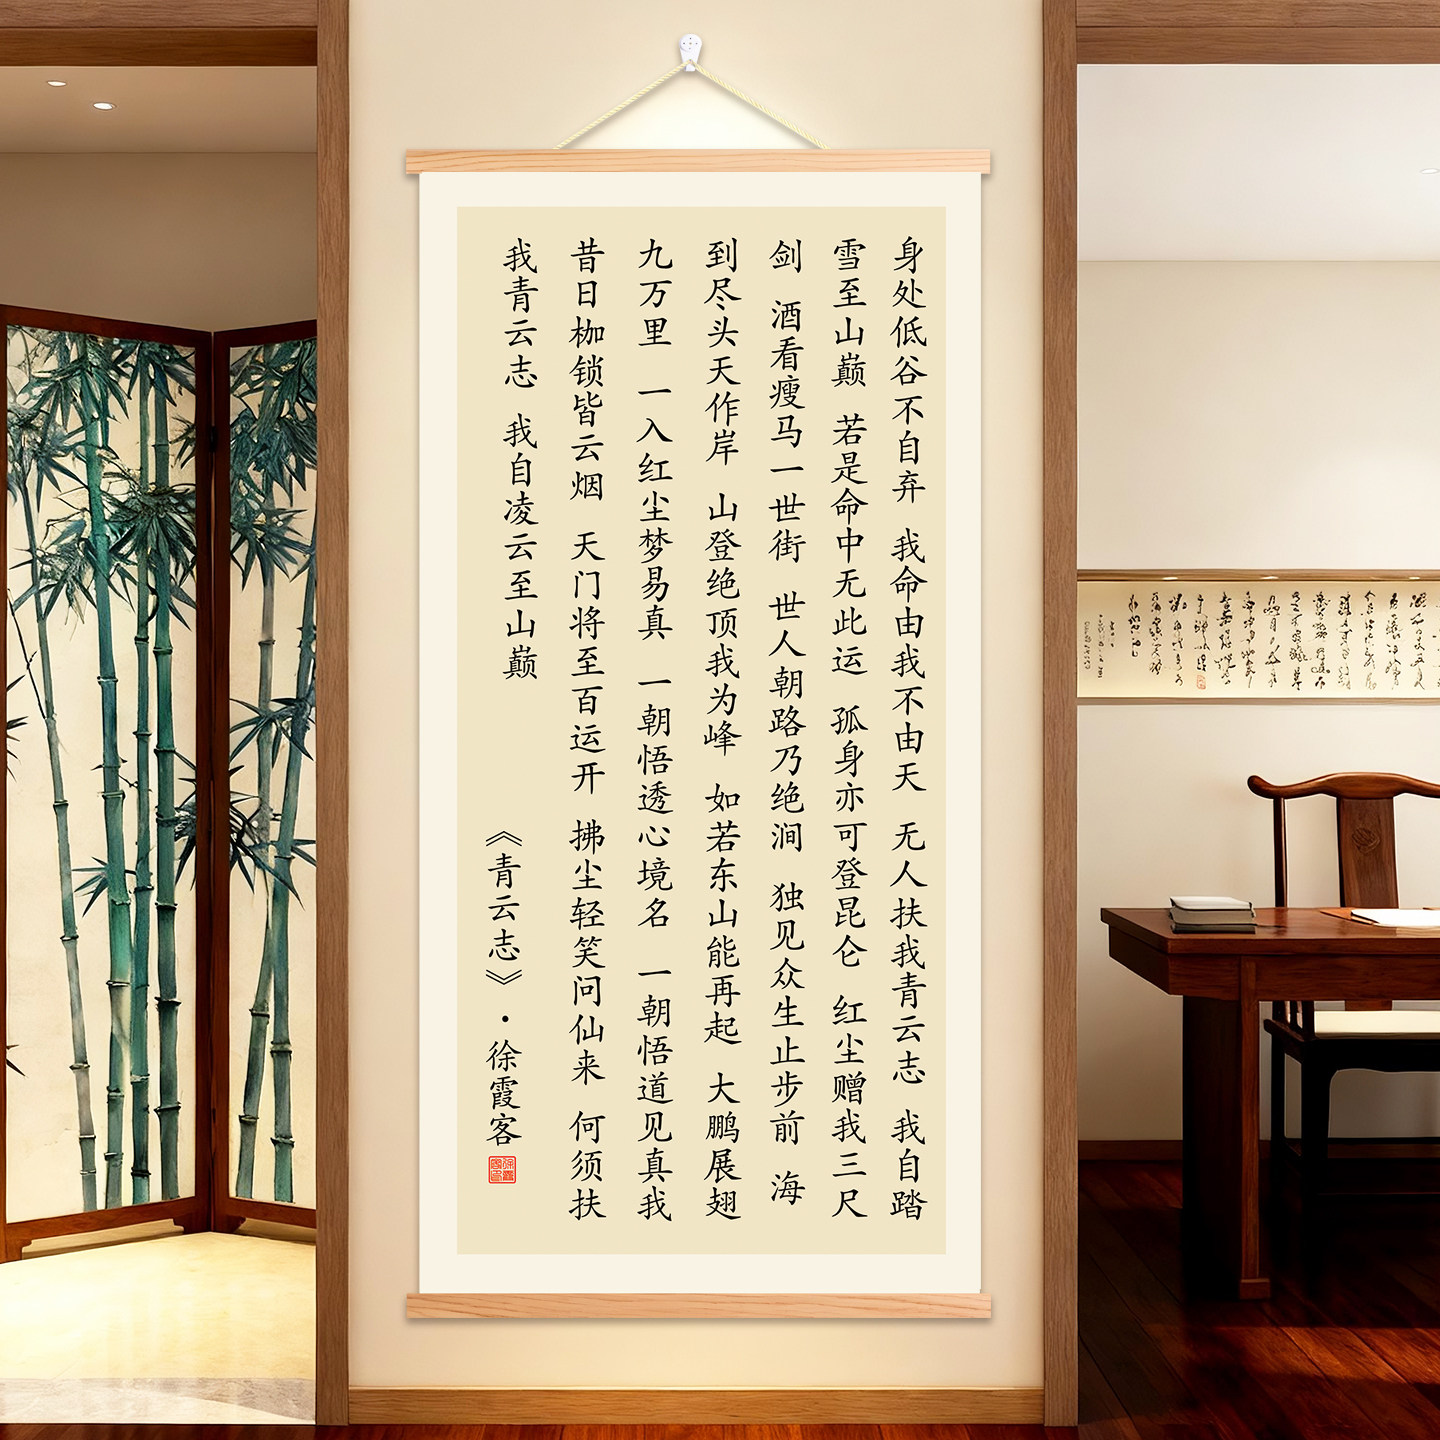 身处低谷不自弃 我命由我不由天 无人扶我青云志 我自踏
雪至山巅 若是命中无此运 孤身亦可登昆仑 红尘赠我三尺
剑 酒看瘦马一世街 世人朝路乃绝涧 独见众生止步前 海
到尽头天作岸 山登绝顶我为峰 如若东山能再起 大鹏展翅
九万里 一入红尘梦易真 一朝悟透心境名 一朝悟道见真我
昔日枷锁皆云烟 天门将至百运开 拂尘轻笑问仙来 何须扶
我青云志 我自凌云至山巅
《青云志》·徐霞客